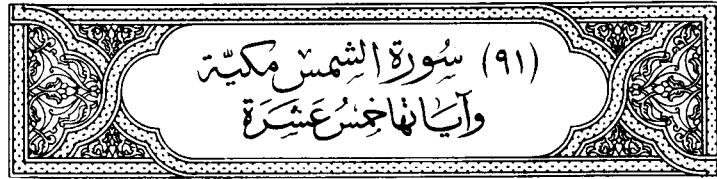 (٩١) سُورَة الشمس مكيّة
وآيَاتها خمسُ عَشَرَة